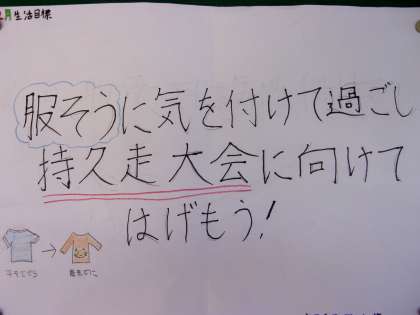 月生活目標
服そうに気を付けて過ごし
持久走大会に向けて
はげもう!